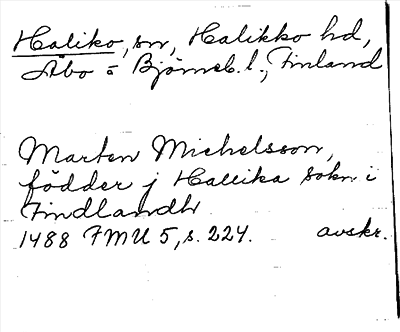 Haliko, sn, Halikko hd,
Åbo o Björneb. l., Finland
Marten Michelsson,
födder j Hallika sokn i
Findlandh
1488 FMU 5, s. 224. avskr.